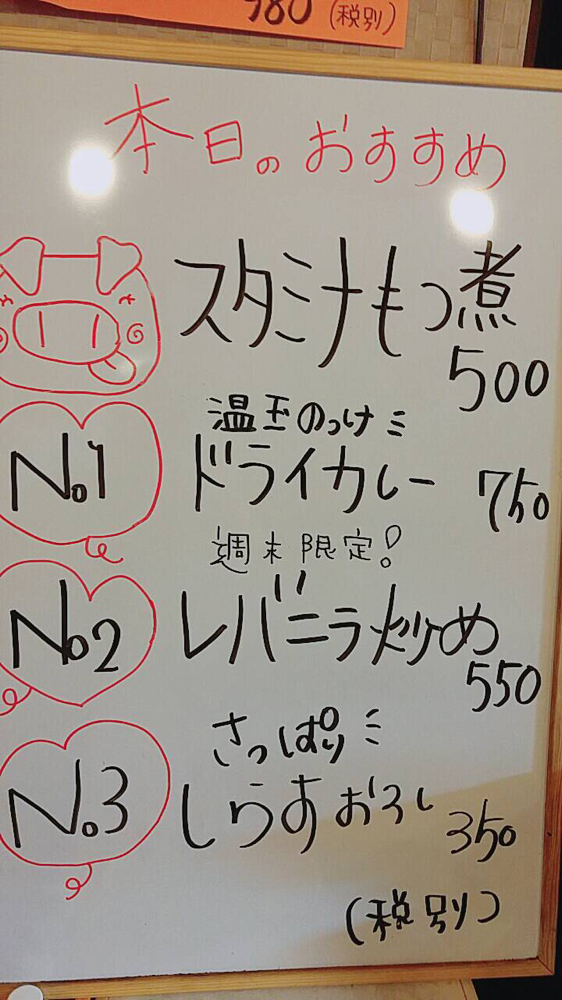 980 (税別)
本日のおすすめ
スタミナもつ煮
500
温玉のっけ
No.1 ドライカレー 750
週末限定!
No.2 レバニラ炒め
550
さっぱり
No.3 しらすおろし 350
(税別)